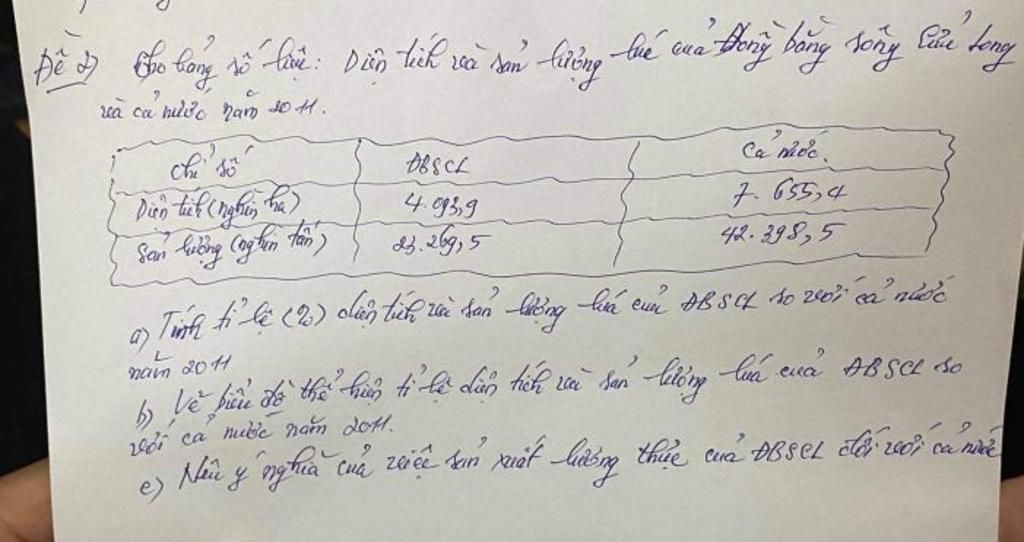 Đề 2) Cho bảng số liệu: Diện tích và sản lượng lúa của Đồng bằng sông Cửu Long
và cả nước năm 2011.
Chỉ số ĐBSCL Cả nước.
Diện tích (nghìn ha) 4.093,9 7.655,4
Sản lượng (nghìn tấn) 23.269,5 42.398,5
a) Tính tỉ lệ (%) diện tích và sản lượng lúa của ĐBSCL so với cả nước
năm 2011
b) Vẽ biểu đồ thể hiện tỉ lệ diện tích và sản lượng lúa của ĐBSCL so
với cả nước năm 2011.
c) Nêu ý nghĩa của việc sản xuất lương thực của ĐBSCL đối với cả nước